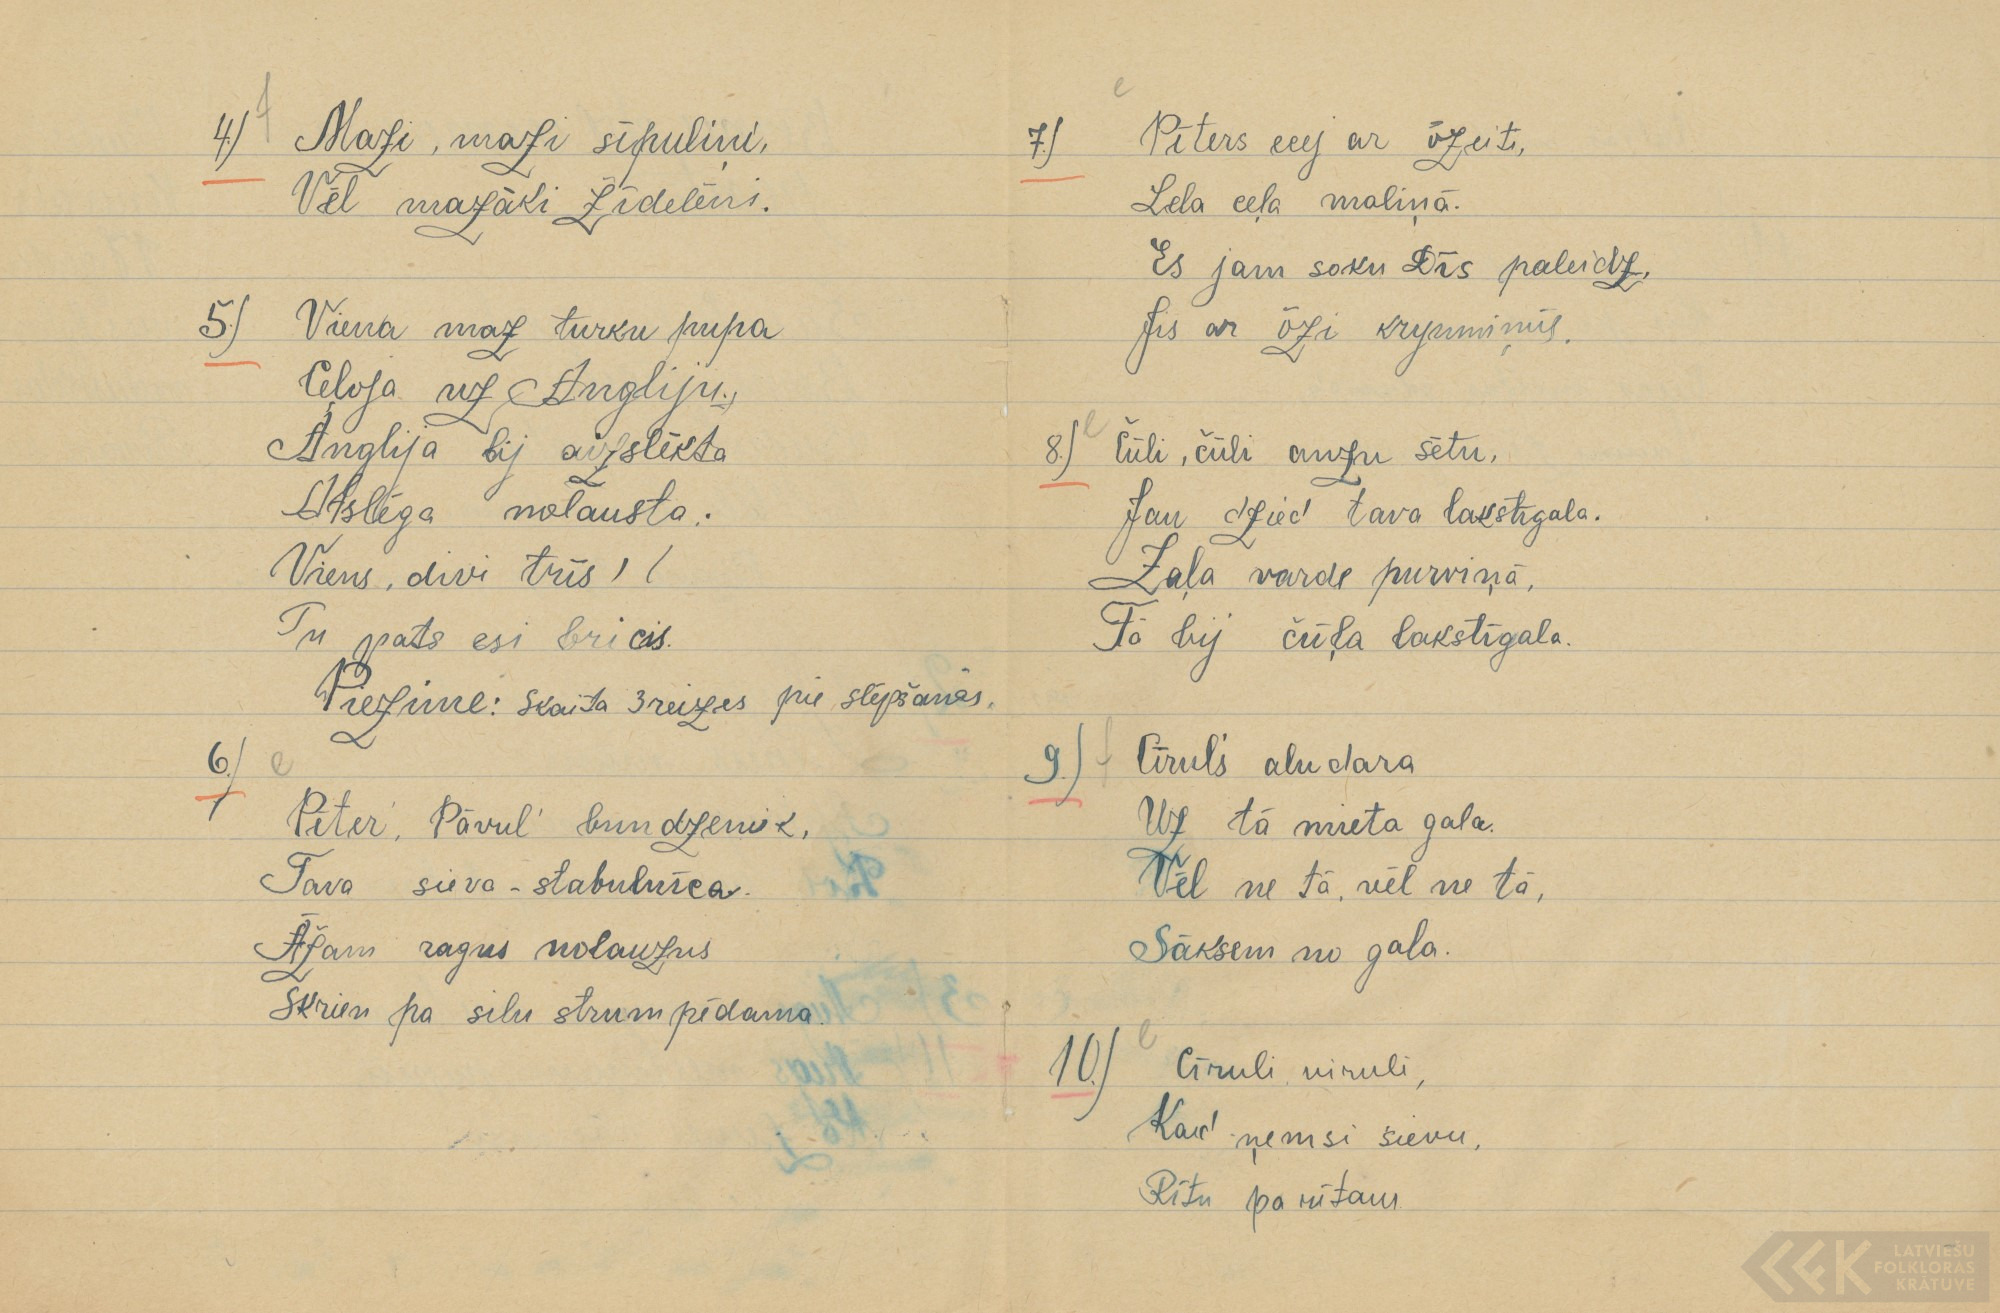 4.) f Mazi, mazi sīpuliņi,
Vēl mazāki Žīdelēni.
5.) Viena maz turku pupa
Ceļoja uz Angliju.,
Anglija bij aizslēkta
Atslēga nolausta.
Viens, divi trīs
Tu pats esi bricis.
Piezīme: Skaita 3 reizes pie slēpšanās.
6.) e
Pēter', Pāvul' bundzeniek,
Tava sieva - stabulnīca.
Āžam ragus nolauzus
Skrien pa silu strumpēdama.
7.) e Pīters eej ar ōzeiti,
Lela ceļa maliņā.
Es jam soku Dīs paleidz,
Jis ar ōzi kryumiņūs.
8.) e Čūli, čūli auzu sētu,
Jau dzied tava lakstīgala.
Zaļa varde purviņā,
Tā bij čūļa lakstīgala.
9.) f Cīruls alu dara
Uz tā mieta gala.
Vēl ne tā, vēl ne tā,
Sāksem no gala.
10.) e Cīruli viruli,
Kad ņemsi sievu,
Rītu parītam
LATVIEŠU
FOLKLORAS
KRĀTUVE